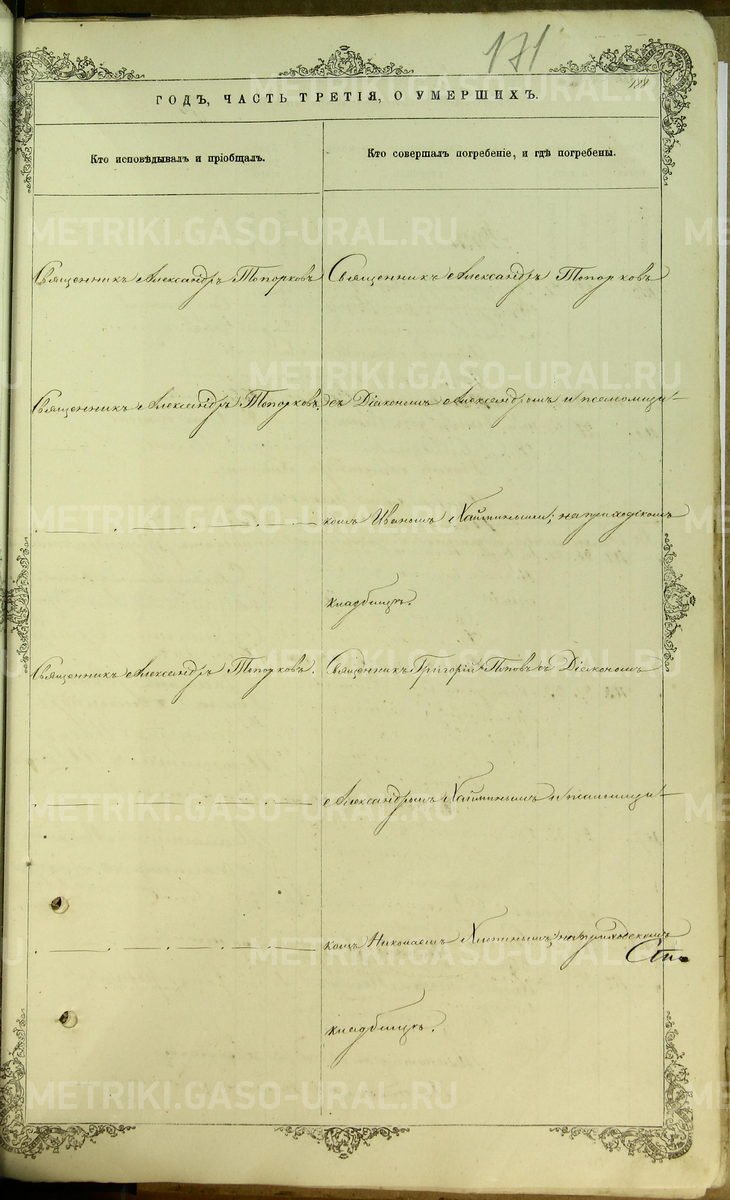 171
188
ГОДЪ, ЧАСТЬ ТРЕТІЯ, О УМЕРШИХЪ.
Кто исповѣдывалъ и пріобщалъ.
Кто совершалъ погребеніе, и гдѣ погребены.
Священникъ Александръ Топорковъ
Священникъ Александръ Топорковъ
Священникъ Александръ Топорковъ
съ Діакономъ Александромъ и псаломщи-
комъ Иваномъ; на приходскомъ
кладбищѣ.
Священникъ Александръ Топорковъ.
Священникъ Григорій Поповъ съ Діакономъ
Александромъ и псаломщи-
комъ Николаемъ на приходскомъ
кладбищѣ.
METRIKI.GASO-URAL.RU